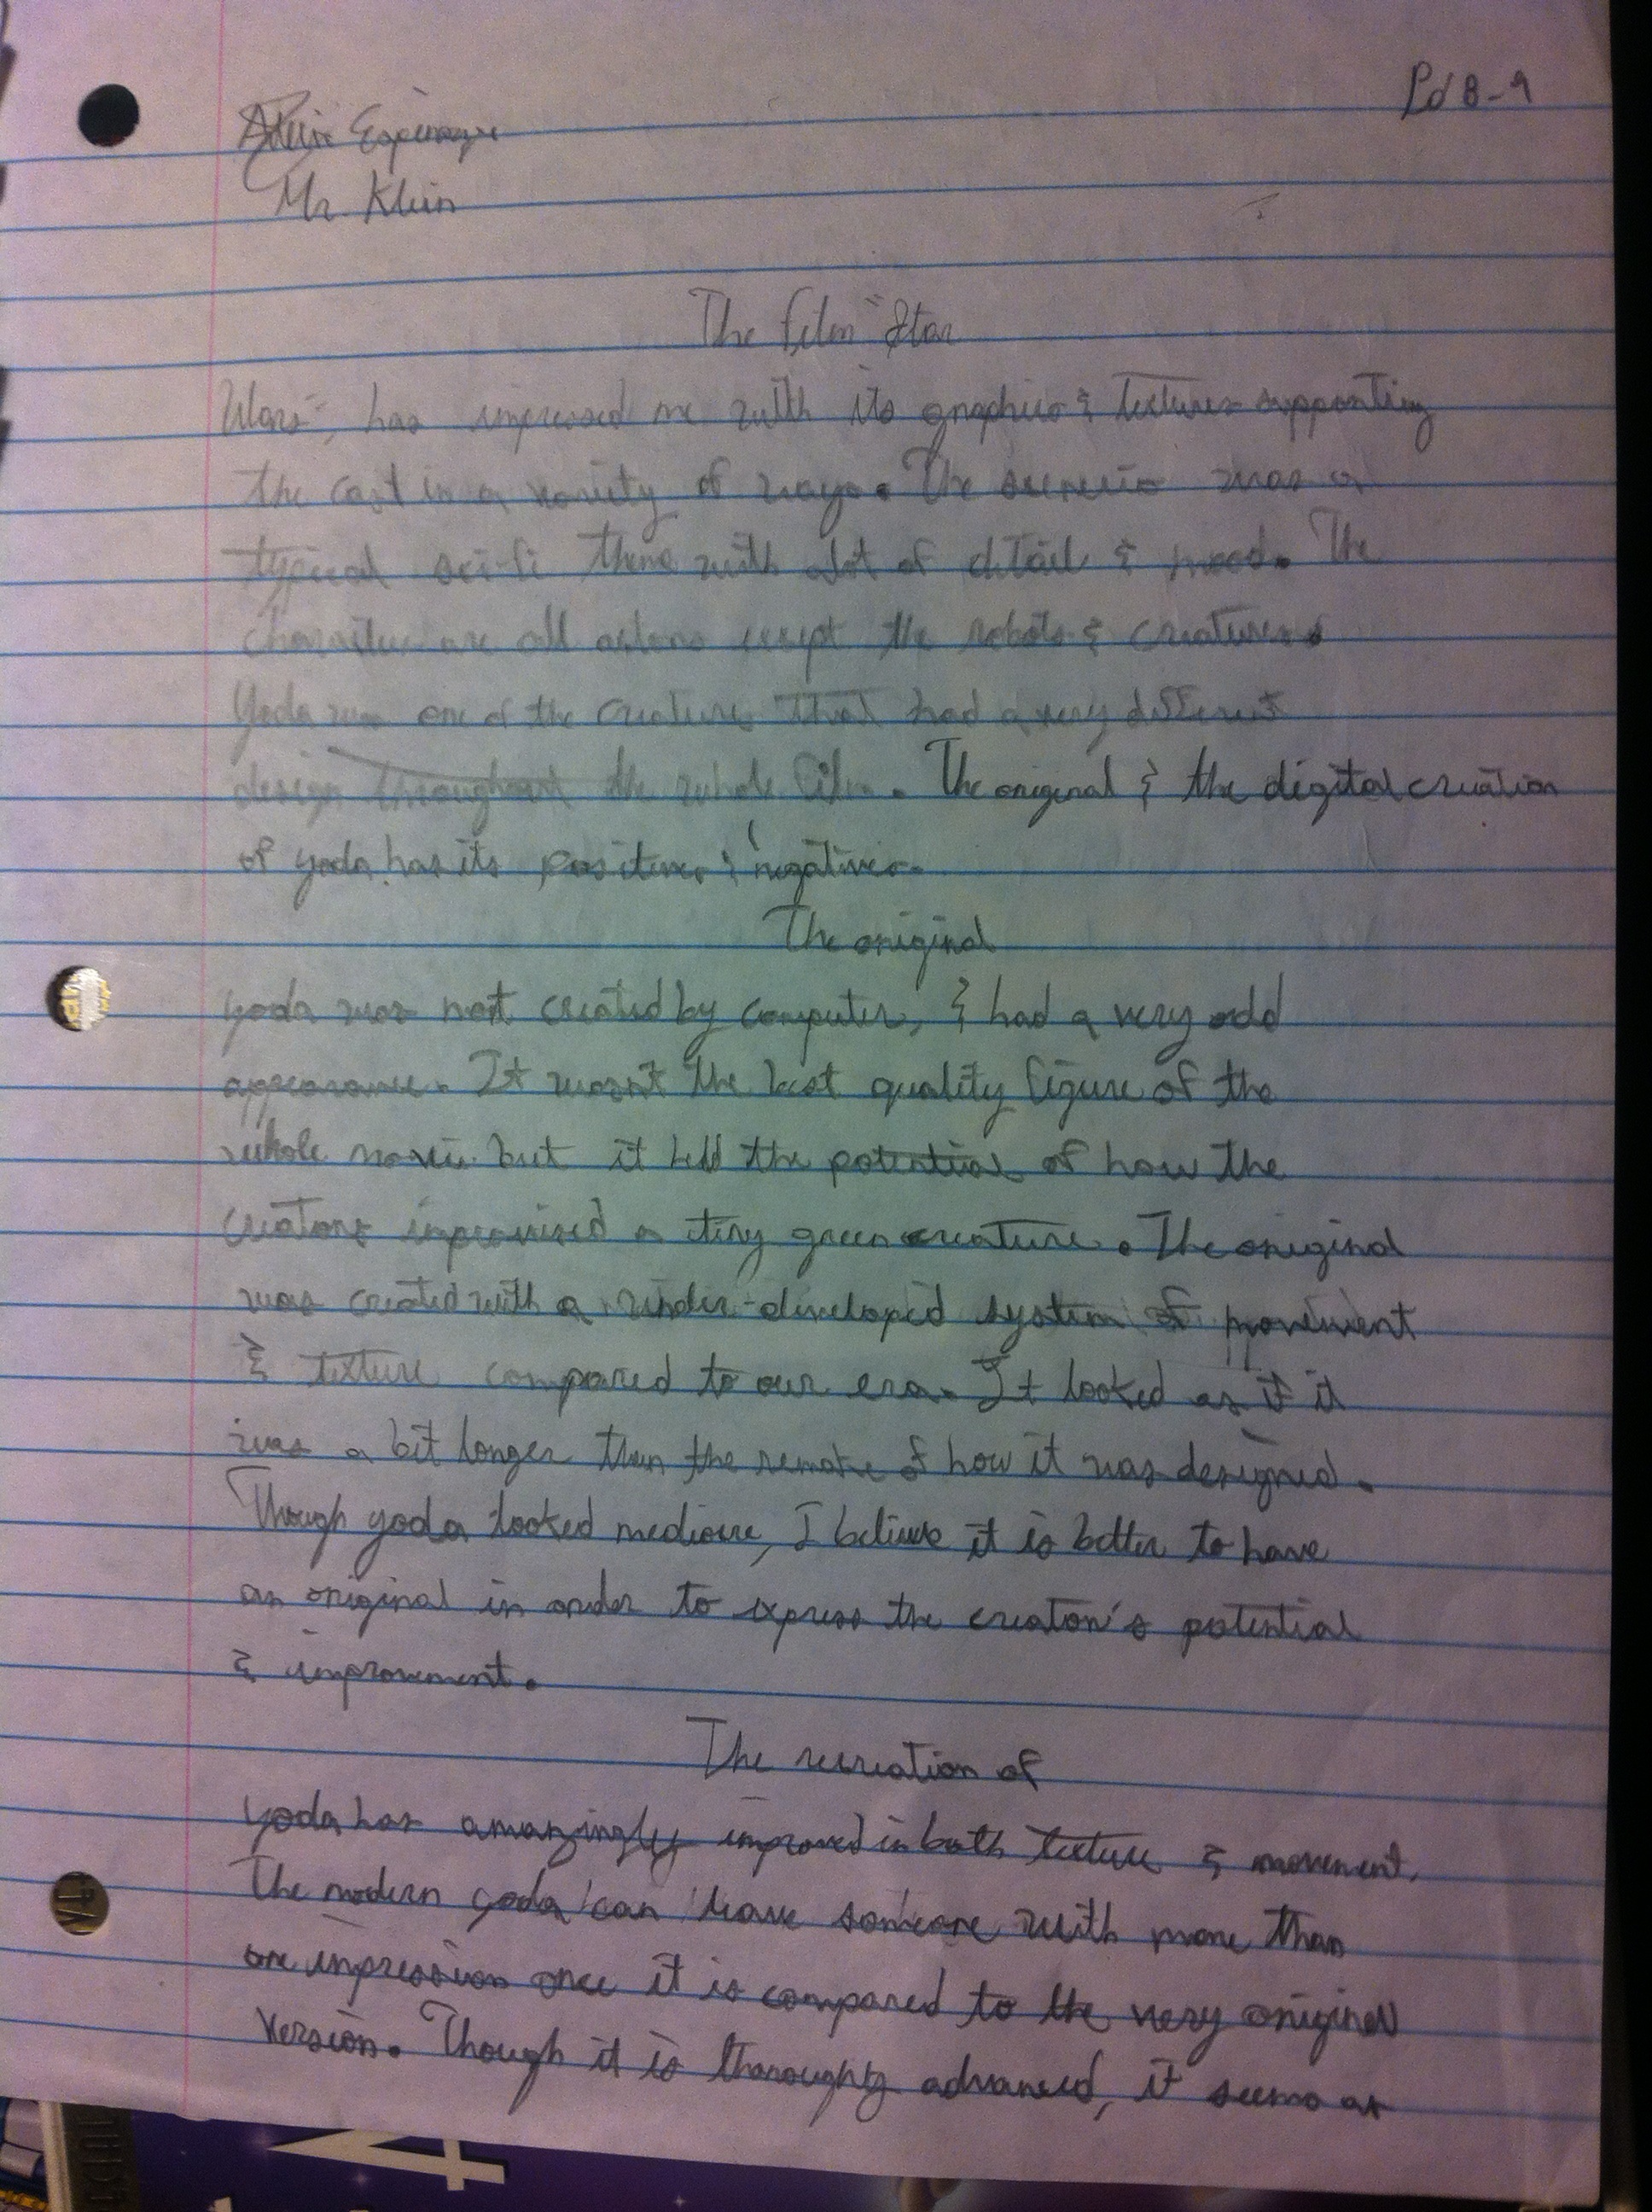 Pd 8-9
Mr. Klein
The film "Star
Wars", has impressed me with its graphics & textures supporting
the cast in a variety of ways. The scenerio was a
typical sci-fi theme with alot of detail & mood. The
are all actors except the robots & creatures
Yoda was one of the creatures that had a very different
design throughout the whole film. The original & the digital creation
of yoda has its positives & negatives.
The original
yoda was not created by computer, & had a very odd
appearance. It wasn't the best quality figure of the
whole movie but it held the potential of how the
creators improvised a tiny green creature. The original
was created with a under-developed system of movement
& texture compared to our era. It looked as if it
was a bit longer than the remake of how it was designed.
Though yoda looked mediocre, I believe it is better to have
an original in order to express the creator's potential
& improvement.
The recreation of
yoda has amazingly improved in both texture & movement.
The modern yoda can leave someone with more than
one impression once it is compared to the very original
version. Though it is thoroughly advanced, it seems as